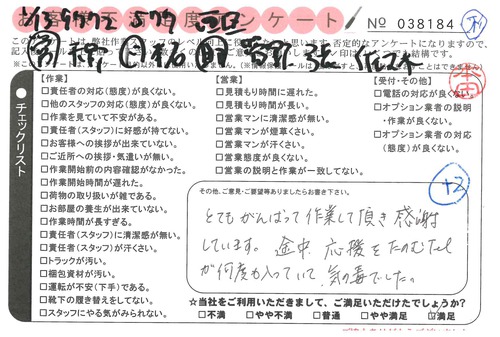 お客様満足度アンケート
No 038184
チェックリスト
【作業】
□責任者の対応(態度)が良くない。
□他のスタッフの対応(態度)が良くない。
□作業を見ていて不安がある。
□責任者(スタッフ)に好感が持てない。
□お客様への挨拶が出来ていない。
□ご近所への挨拶・気遣いが無い。
□作業開始前の内容確認がなかった。
□作業開始時間が遅れた。
□荷物の取り扱いが雑である。
□お部屋の養生が出来ていない。
□作業時間が長すぎる。
□責任者(スタッフ)に清潔感が無い。
□責任者(スタッフ)が汗くさい。
□トラックが汚い。
□梱包資材が汚い。
□運転が不安(下手)である。
□靴下の履き替えをしてない。
□スタッフにやる気がみられない。
【営業】
□見積もり時間に遅れた。
□見積もり時間が長い。
□営業マンに清潔感が無い。
□営業マンが煙草くさい。
□営業マンが汗くさい。
□営業態度が良くない。
□営業の説明と作業が一致してない。
【受付・その他】
□電話の対応が良くない。
□オプション業者の説明
・作業が良くない。
□オプション業者の対応
(態度)が良くない。
+2
その他、ご意見・ご要望等ありましたらお書き下さい。
とてもがんばって作業して頂き感謝
しています。途中 応援をたのむTel
が何度も入っていて、気の毒でした。
☆当社をご利用いただきまして、ご満足いただけたでしょうか?
□不満 □やや不満 □普通 □やや満足 ☑満足